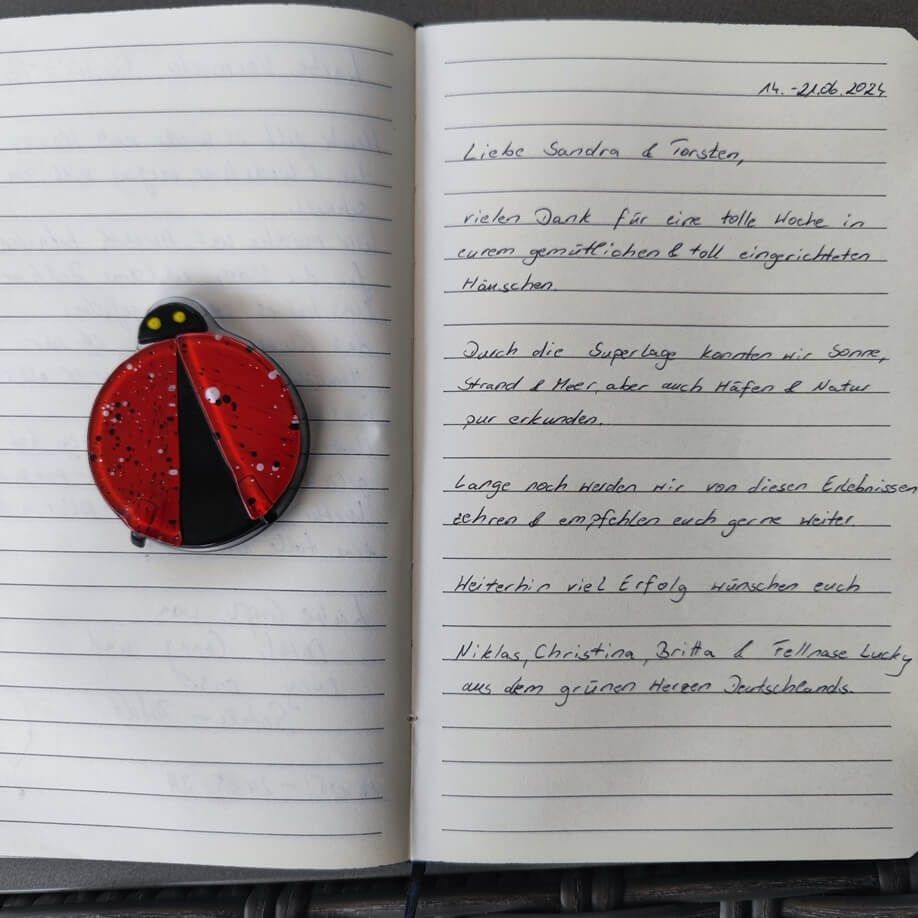 14.-21.06.2024
Liebe Sandra & Torsten,
vielen Dank für eine tolle Woche in
eurem gemütlichen & toll eingerichteten
Häuschen.
Durch die Superlage konnten wir Sonne,
Strand & Meer, aber auch Häfen & Natur
pur erkunden.
Lange noch werden wir von diesen Erlebnissen
zehren & empfehlen euch gerne weiter.
Weiterhin viel Erfolg wünschen euch
Niklas, Christina, Britta & Fellnase Lucky
aus dem grünen Herzen Deutschlands.